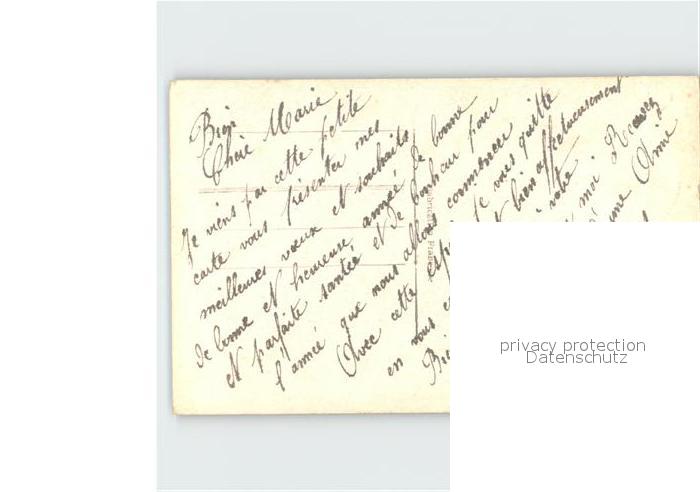 Bien
Chère Marie
Je viens par cette petite
carte vous présenter mes
meilleures vœux et souhaits
de bonne et heureuse année de bonne
et parfaite santée et de bonheur pour
l'année que nous allons commencer
Avec cette
en vous
Je vous quitte
bien affectueusement
votre
moi Recevez
Aimé
Fabriqué France
privacy protection
Datenschutz